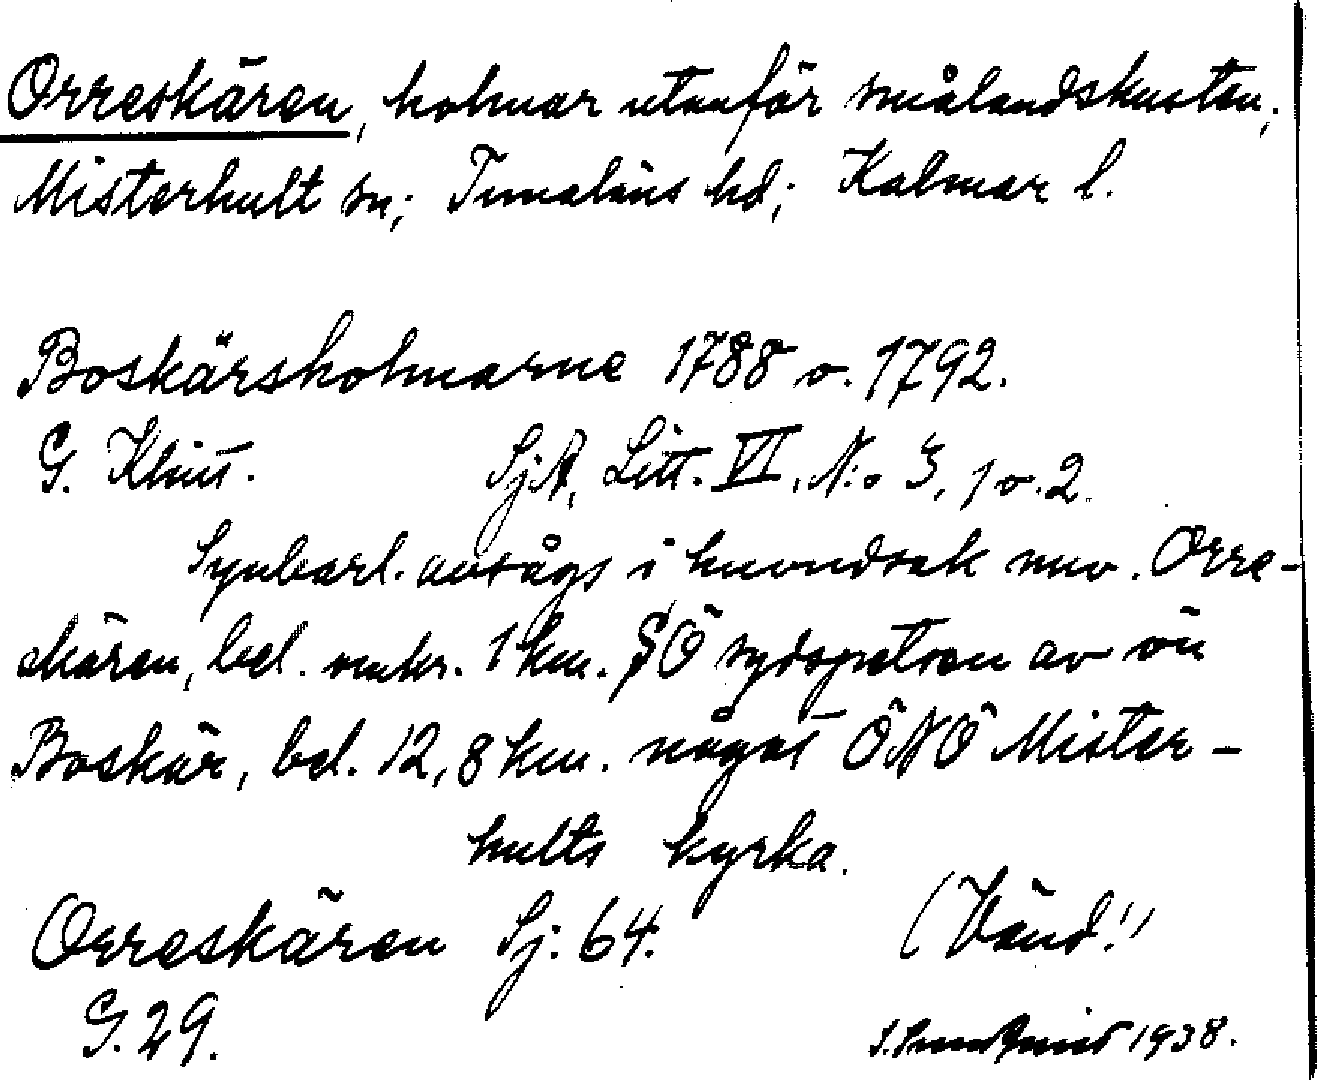 Orreskären, holmar utanför smålandskusten,
Misterhult sn; Tunaläns hd; Kalmar l.
Boskärsholmarne 1788 o. 1792.
G. Klint. Sj.A, Litt. VI, N:o 3, 1 o. 2.
Synbarl. avsågs i huvudsak nuv. Orre-
skären, bel. omkr. 1 km. SÖ sydspetsen av ön
Boskär, bel. 12,8 km. något ÖNÖ Mister-
hults kyrka.
Orreskären Sj. 64. (Vänd!)
G. 29. 1938.